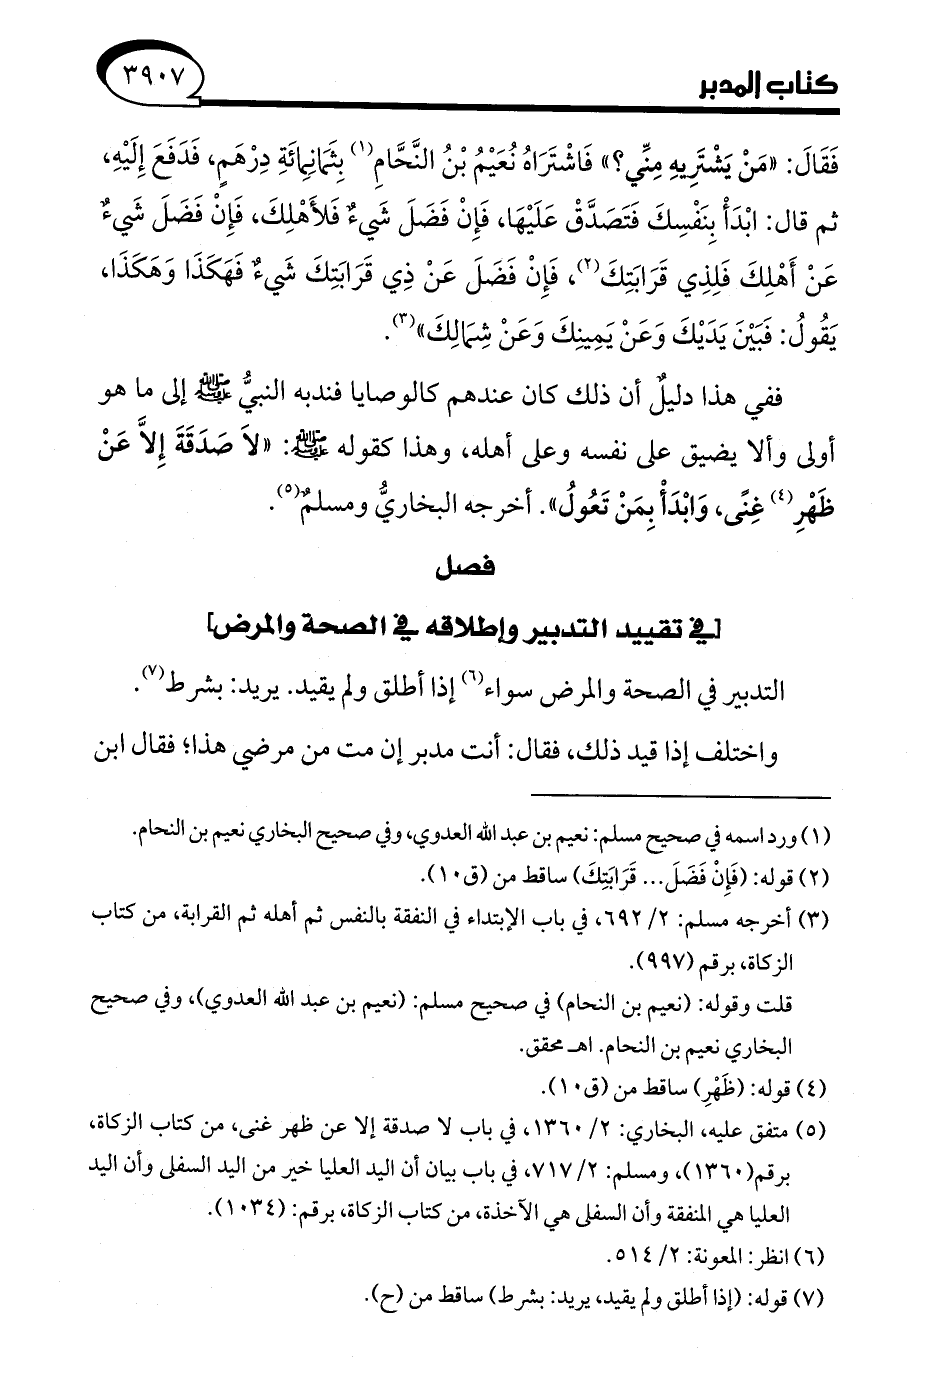 كتاب المدبر
٣٩٠٧
فَقَالَ: «مَنْ يَشْتَرِيهِ مِنِّي؟» فَاشْتَرَاهُ نُعَيْمُ بْنُ النَّحَّامِ(١) بِثَمَانِمائَةِ دِرْهَمٍ، فَدَفَعَ إِلَيْهِ،
ثم قال: ابْدَأْ بِنَفْسِكَ فَتَصَدَّقْ عَلَيْهَا، فَإِنْ فَضَلَ شَيءٌ فَلأَهْلِكَ، فَإِنْ فَضَلَ شَيءٌ
عَنْ أَهْلِكَ فَلِذِي قَرَابَتِكَ(٢)، فَإِنْ فَضَلَ عَنْ ذِي قَرَابَتِكَ شَيءٌ فَهَكَذَا وَهَكَذَا،
يَقُولُ: فَبَيْنَ يَدَيْكَ وَعَنْ يَمِينِكَ وَعَنْ شِمَالِكَ»(٣).
ففي هذا دليلٌ أن ذلك كان عندهم كالوصايا فندبه النبيُّ ﷺ إلى ما هو
أولى وألا يضيق على نفسه وعلى أهله، وهذا كقوله ﷺ: «لاَ صَدَقَةَ إِلاَّ عَنْ
ظَهْرِ(٤) غِنًى، وَابْدَأْ بِمَنْ تَعُولُ». أخرجه البخاريُّ ومسلمٌ(٥).
فصل
[في تقييد التدبير وإطلاقه في الصحة والمرض]
التدبير في الصحة والمرض سواء(٦) إذا أطلق ولم يقيد. يريد: بشرط(٧).
واختلف إذا قيد ذلك، فقال: أنت مدبر إن مت من مرضي هذا؛ فقال ابن
(١) ورد اسمه في صحيح مسلم: نعيم بن عبد الله العدوي، وفي صحيح البخاري نعيم بن النحام.
(٢) قوله: (فَإِنْ فَضَلَ... قَرَابَتِكَ) ساقط من (ق١٠).
(٣) أخرجه مسلم: ٢/ ٦٩٢، في باب الإبتداء في النفقة بالنفس ثم أهله ثم القرابة، من كتاب
الزكاة، برقم (٩٩٧).
قلت وقوله: (نعيم بن النحام) في صحيح مسلم: (نعيم بن عبد الله العدوي)، وفي صحيح
البخاري نعيم بن النحام. اهـ محقق.
(٤) قوله: (ظَهْرِ) ساقط من (ق١٠).
(٥) متفق عليه، البخاري: ٢/ ١٣٦٠، في باب لا صدقة إلا عن ظهر غنى، من كتاب الزكاة،
برقم(١٣٦٠)، ومسلم: ٢/ ٧١٧، في باب بيان أن اليد العليا خير من اليد السفلى وأن اليد
العليا هي المنفقة وأن السفلى هي الآخذة، من كتاب الزكاة، برقم: (١٠٣٤).
(٦) انظر: المعونة: ٢/ ٥١٤.
(٧) قوله: (إذا أطلق ولم يقيد، يريد: بشرط) ساقط من (ح).